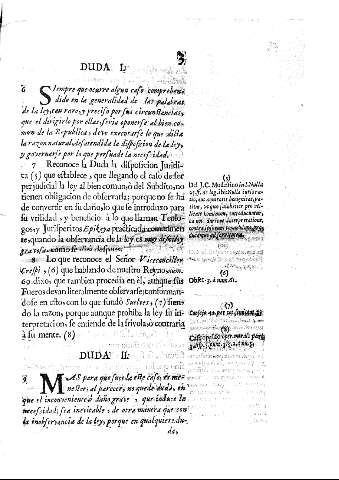 3
DUDA I.
6 SIempre que ocurre algun caso comprehendido en la generalidad de las palabras
de la ley, tan raro, y preciso por sus circunstancias,
que el dirigirlo por ellas, seria oponerse al bien comun de la Republica, deve executarse lo que dicta
la razon natural, desatendida la disposicion de la ley,
y governarse por lo que persuade la necesidad.
7 Reconoce la Duda la disposicion Juridica (5) que establece, que llegando el caso de ser
perjudicial la ley al bien comun del Subdito, no
tienen obligacion de observarla; porque no se ha
de convertir en su daño, lo que se introduxo para
su vtilidad, y beneficio à lo que llaman Teologos, y Jurisperitos Epikeya
quando la observancia de la ley es
8 Lo que reconoce el Señor Vicecanciller
Crespi, (6) que hablando de nuestro Reyno, num.
60. dixo, que tambien procedia en èl, aunque sus
Fueros devan literalmente observarse; conformandose en esto con lo que fundò Suelves, (7) siendo la razon, porque aunque prohiba la ley su interpretacion, se entiende de la frivola, ò contraria
à su mente. (8)
(5)
Del J. C. Modestino in L. Nulla
25. ff. de leg. ibi: Nulla iuris ratio, aut æquitatis benignitas, patitur, vt quæ salubriter pro vtilitate hominum, introducuntur,
ea nos duriore interpretatione,
(6)
(7)
(8)
DUDA II.
9 MAS para que suceda este caso, es menester, al parecer, no quede duda, en
que el inconveniente, ò daño grave, y que induce la
necesidad; sea inevitable, de otra manera que con
la inobservancia de la ley, porque en qualquiere du-
da,